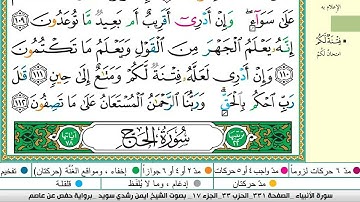 الإعلام به
فِتْنَةٌ لَّكُمْ
امتحان لكم
عَلَىٰ سَوَآءٍ وَإِنْ أَدْرِىٓ أَقَرِيبٌ أَم بَعِيدٌ مَّا تُوعَدُونَ ١٠٩
إِنَّهُۥ يَعْلَمُ ٱلْجَهْرَ مِنَ ٱلْقَوْلِ وَيَعْلَمُ مَا تَكْتُمُونَ
١١٠ وَإِنْ أَدْرِى لَعَلَّهُۥ فِتْنَةٌ لَّكُمْ وَمَتَـٰعٌ إِلَىٰ حِينٍ ١١١ قَـٰلَ
رَبِّ ٱحْكُم بِٱلْحَقِّ وَرَبُّنَا ٱلرَّحْمَـٰنُ ٱلْمُسْتَعَانُ عَلَىٰ مَا تَصِفُونَ ١١٢
سُورَةُ الحَجِّ
آياتها ٧٨
مدّ ٦ حركات لزوماً مدّ واجب ٤ أو ٥ حركات مدّ ٢ أو ٤ أو ٦ جوازاً إخفاء، ومواقع الغُنَّة (حركتان) تفخيم
مدّ حركتان إدغام، وما لا يُلفَظ قلقلة
سورة الأنبياء . الصفحة ٣٣١ . الحزب ٣٣ . الجزء ١٧ . بصوت الشيخ ايمن رشدي سويد . برواية حفص عن عاصم